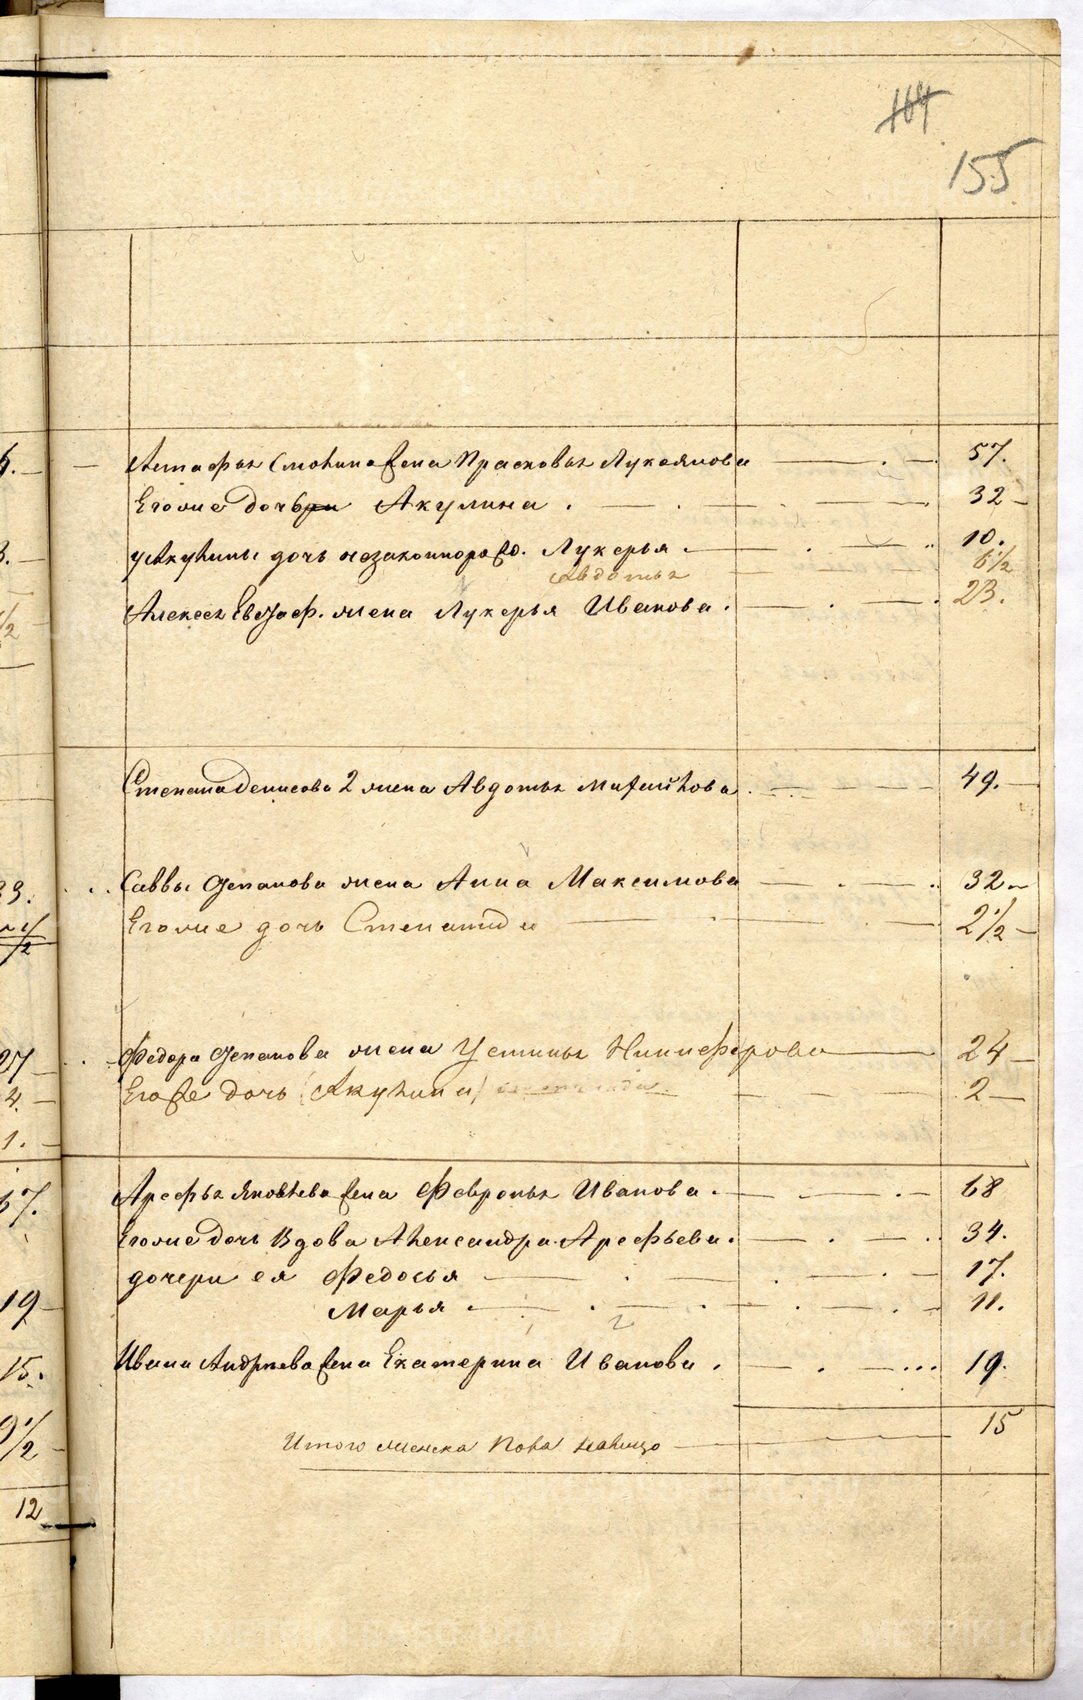 104
155
5. —
Астафья Смолина жена Прасковья Лукоямова 57.
Егоже дочь Акулина 32
3. —
у Акулины дочь незаконнорожд. Лукерья 10.
Авдотья 6 1/2
1/2
Алексея Евстаф. жена Лукерья Иванова 23.
Степана Денисова 2 жена Авдотья Матвейкова 49.
33.
Саввы Степанова жена Анна Максимова 32
1/2
Егоже дочь Степанида 2 1/2
27
Федора Степанова жена Устинья Никифорова 24
4. —
Егоже дочь (Акулина) 2
1.
57.
Арефья Яковлева жена Февронья Иванова 68
Егоже дочь вдова Александра Арефьева 34.
дочери ея Федосья 17.
19
Марья 11.
15.
Ивана Андреева жена Екатерина Иванова 19.
9 1/2
15
Итого женска пола налицо
12